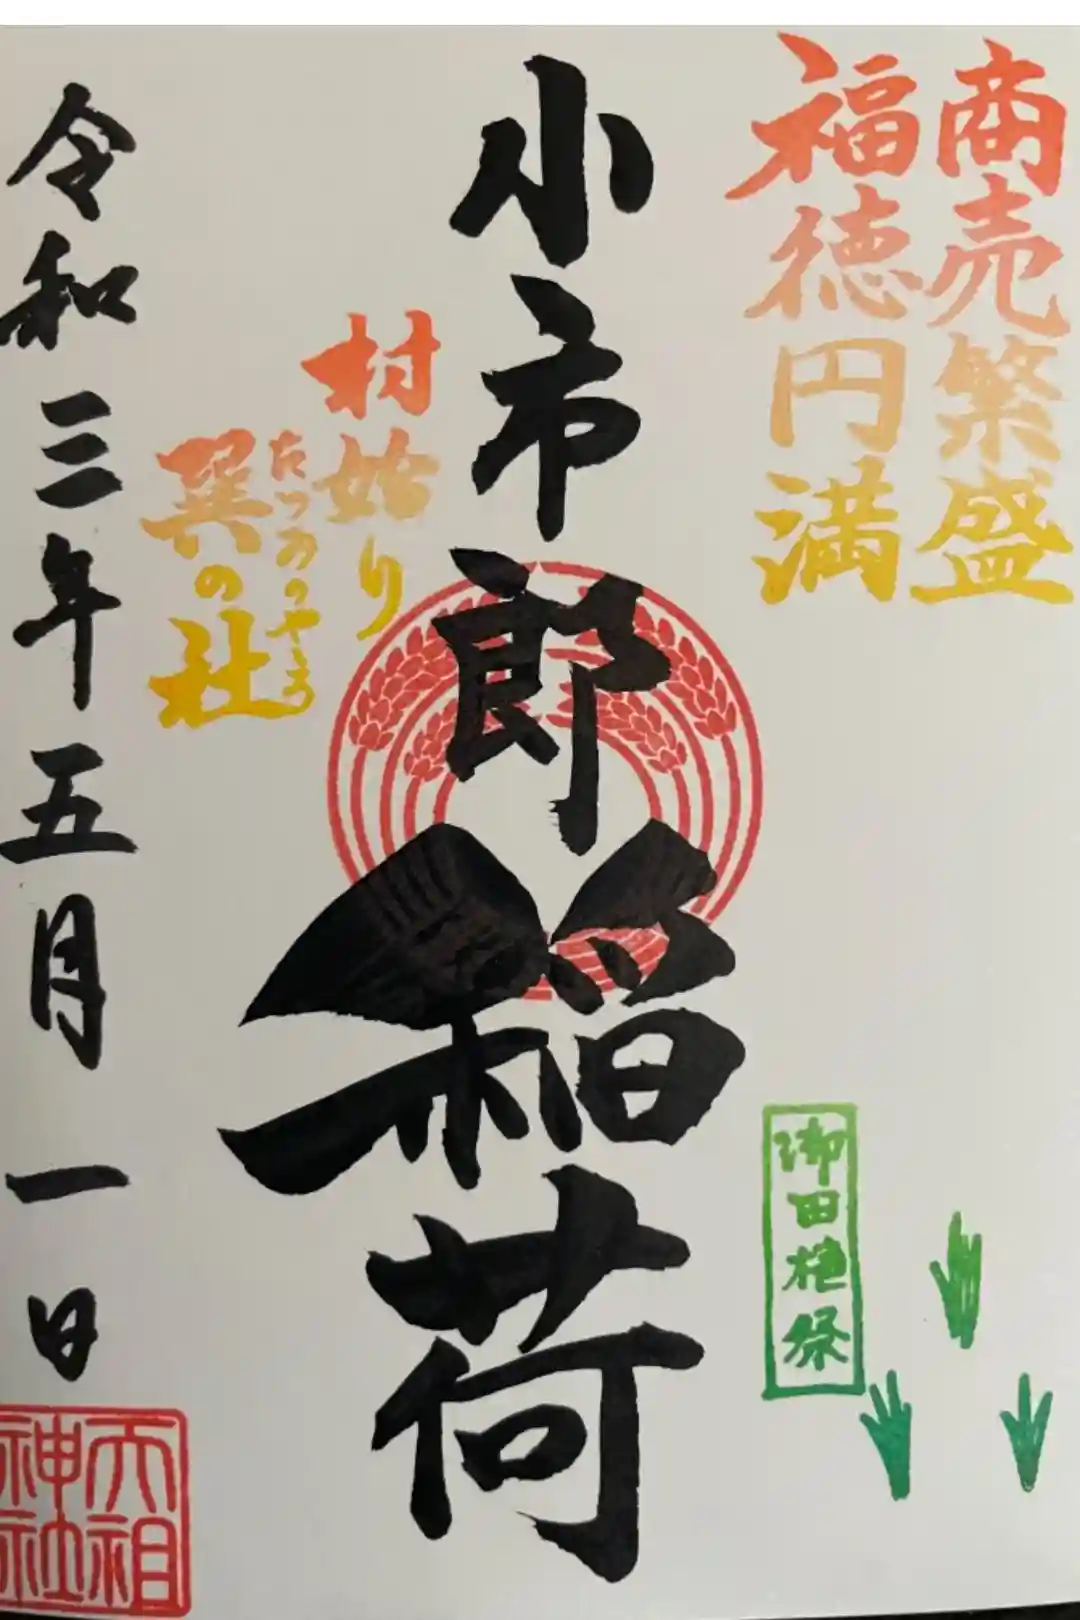 商売繁盛
福徳円満
小市郎稲荷
村始り
たつみのやしろ
巽の社
令和三年五月一日
御田植祭
大祖
神社